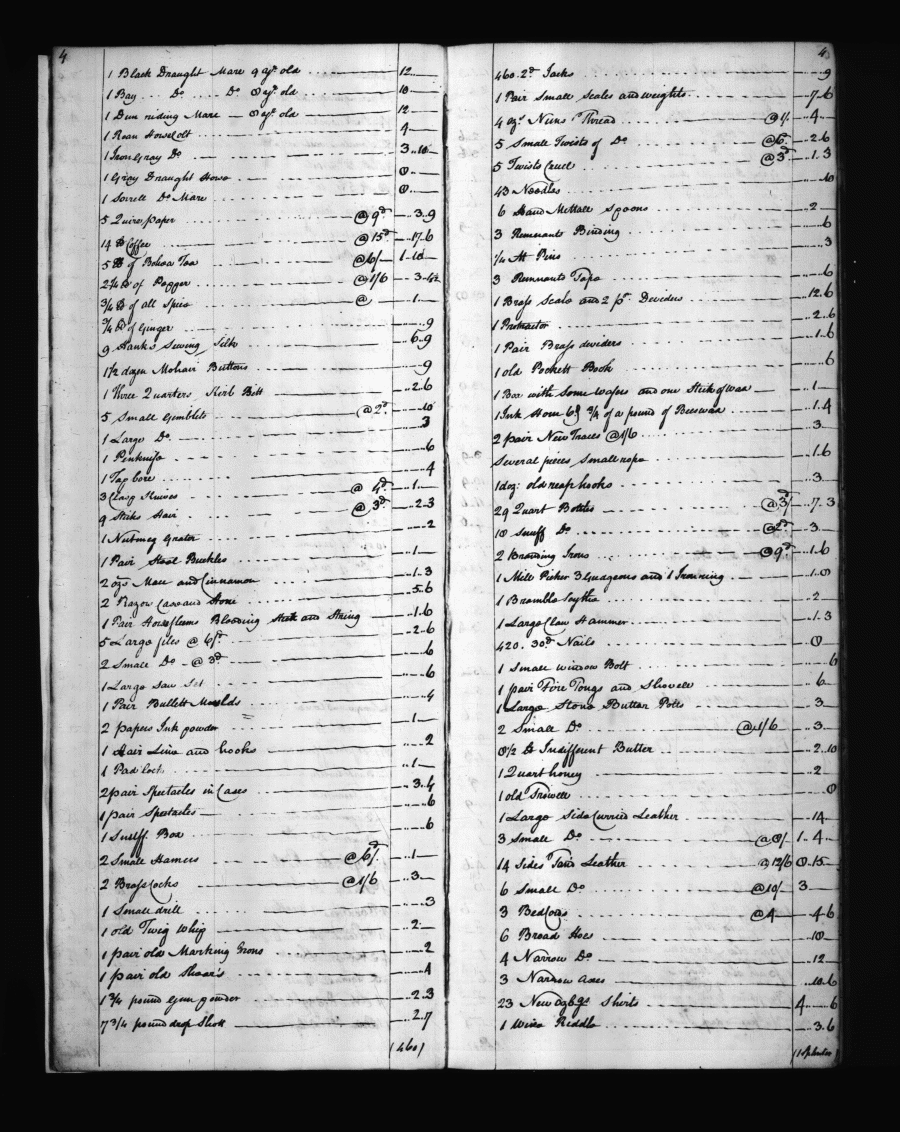 4
1 Black Draught Mare 9 yrs old 12..
1 Bay Do Do 8 yrs old 10
1 Dun riding Mare 8 yrs old 12
1 Roan Horse Colt 4
1 Iron Gray Do 3..10
1 Gray Draught Horse 8..
1 Sorrell Do Mare 8..
5 Quire paper @ 9d ..3..9
14 lb Coffee @ 15d ..17.6
5 lb of Bohea Tea @ 6/ 1..10
2 1/4 lb of Pepper @ 1/6 ..3..4 1/2
3/4 lb of all Spice @ ..1..
3/4 lb of Ginger ..9
9 Hanks Sewing Silk ..6..9
1 1/2 dozen Mohair Buttons ..9
1 Three Quarters Kerb Bitt ..2.6
5 Small Gimblets @ 2d ..10
1 Large Do 3
1 Penknife 6
1 Tap bore 4
3 Clasp Knives @ 4d ..1..
9 Sticks Hair @ 3d ..2.3
1 Nutmeg Grater 2
1 Pair Steel Buckles ..1
2 ozs Mace and Cinnamon ..1.3
2 Razors Case and Hone ..5.6
1 Pair Horse fleems Blooding Stick and String ..1.6
5 Large files @ 6d ..2.6
2 Small Do @ 3d 6
1 Large Saw Set ..6
1 Pair Bullett Moulds ..4
2 papers Ink powder ..1
1 Hair Line and hooks ..2
1 Pad lock ..1
2 pair Spectacles in Cases ..3..4
1 pair Spectacles ..6
1 Snuff Box ..6
2 Small Hames @ 6d ..1
2 Brass Cocks @ 1/6 ..3
1 Small drill ..3
1 old Twig Whip ..2
1 pair old Marking Irons ..2
1 pair old Shears ..4
1 3/4 pound Gun powder ..2.3
7 3/4 pound drop Shott ..2.7
(460)
4
460. 2d Tacks 9
1 Pair Small Scales and weights ..7.6
4 ozs Nuns Thread @ 1/ ..4
5 Small Twists of Do @ 6 ..2.6
5 Twists Cruel @ 3d ..1.3
43 Needles 10
6 Hard Mettale Spoons ..2
3 Remnants Binding 6
1/4 M Pins 3
3 Remnants Tape 6
1 Brass Scale and 2 pr Deviders ..12.6
1 Protractor ..2.6
1 Pair Brass dividers ..1.6
1 old Pockett Book 6
1 Box with Some Wafers and one Stick of wax ..1
1 Ink Stone 6d 3/4 of a pound of Beeswax ..1.4
2 pair New Traces @ 1/6 3
Several pieces Small rope ..1.6
1 doz: old reap hooks 3
29 Quart Bottles @ 3d ..7.3
18 Snuff Do @ 2d 3
2 Branding Irons @ 9d ..1.6
1 Mill Picker 3 Guageons and 1 1.8
1 Bramble Scythe ..2
1 Large Claw Hammer ..1.3
420. 30d Nails 8
1 Small window Bolt 6
1 pair Fire Tongs and Shovell 6
1 Large Stone Butter Potts 3
2 Small Do @ 1/6 ..3
8 1/2 lb Indifferent Butter ..2.10
1 Quart honey ..2
1 old Trowell 8
1 Large Side Curried Leather 14
3 Small Do @ 8/ 1..4
14 Sides Tand Leather @ 12/6 8.15
6 Small Do @ 10/ 3
3 Bed Cows @ 4 4 6
6 Broad Hoes 18
4 Narrow Do 12
3 Narrow axes ..10.6
23 New Shirts 4 6
1 Wire Riddle ..3.6